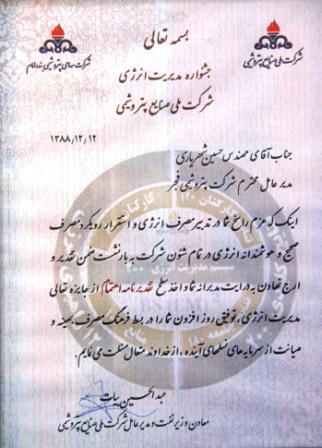 بسمه تعالی
شرکت ملی صنایع پتروشیمی
شرکت سهامی پتروشیمی بندر امام
جشنواره مدیریت انرژی
شرکت ملی صنایع پتروشیمی
۱۳۸۸/۱۲/۱۲
جناب آقای مهندس حسین شهریاری
مدیر عامل محترم شرکت پتروشیمی فجر
اینک که عزم راسخ شما در تدبیر مصرف انرژی و استقرار رویکرد مصرف
صحیح و هوشمندانه انرژی در تمام شئون شرکت به بار نشست ضمن تقدیر و
ارج نهادن به درایت مدیرانه شما و اخذ سطح تقدیرنامه اهتمام از جایزه تعالی
مدیریت انرژی، توفیق روز افزون شما را در بسط فرهنگ مصرف بهینه و
صیانت از سرمایه های نسلهای آینده، از خداوند متعال مسئلت می نمایم.
عبدالحسین بیات
معاون وزیر نفت و مدیر عامل شرکت ملی صنایع پتروشیمی